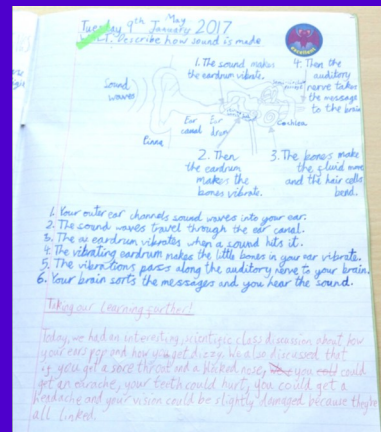 Tuesday 9th January May 2017
L.I. describe how sound is made
1. The sound makes
the eardrum vibrate.
4. Then the
auditory
nerve takes
the message
to the brain
Sound
waves
Ear
canal
Ear
drum
Cochlea
Pinna
2. Then
the eardrum
makes the
bones vibrate.
3. The bones make
the fluid move
and the hair cells
bend.
1. Your outer ear channels sound waves into your ear.
2. The sound waves travel through the ear canal.
3. The eardrum vibrates when a sound hits it.
4. The vibrating eardrum makes the little bones in your ear vibrate.
5. The vibrations pass along the auditory nerve to your brain.
6. Your brain sorts the messages and you hear the sound.
Taking our learning further!
Today, we had an interesting, scientific class discussion about how
your ears pop and how you get dizzy. We also discussed that
if you get a sore throat and a blocked nose, you could
get an earache, your teeth could hurt, you could get a
headache and your vision could be slightly damaged because they're
all linked.